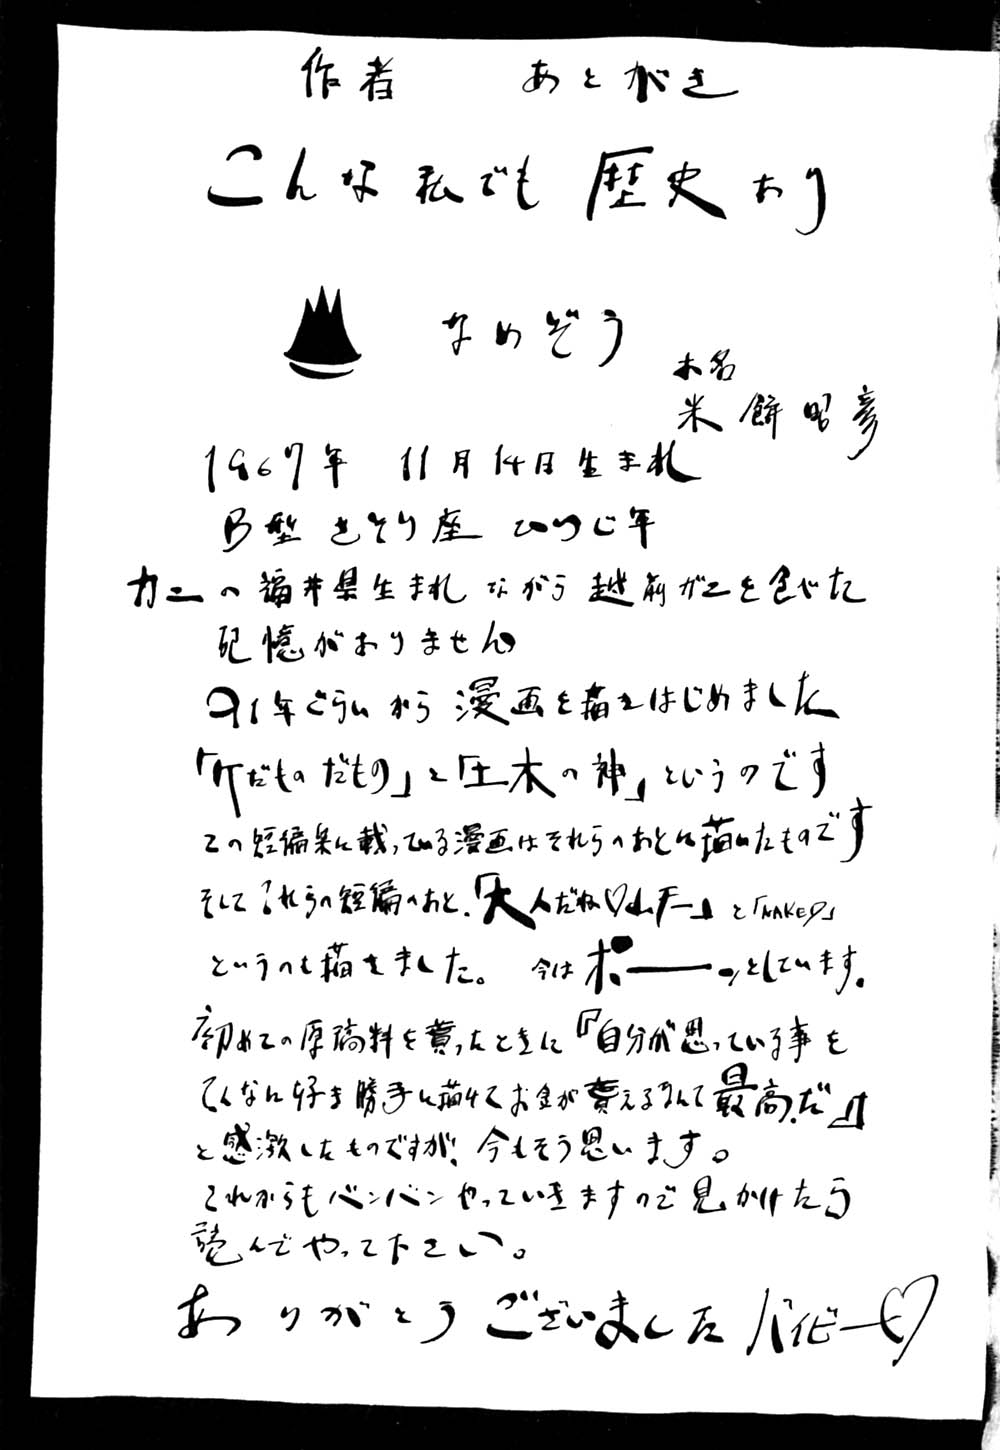 作者　あとがき
こんな私でも歴史あり
なめぞう
本名
米餅昭彦
1967年　11月14日生まれ
B型　さそり座　ひつじ年
カニの福井県生まれながら越前ガニを食べた
記憶がありません
91年ぐらいから漫画を描きはじめました
「けだものだもの」と「土木の神」というのです
この短編集に載っている漫画はそれらのあとに描いたものです
そしてこれらの短編のあと、「大人だね♡ムチー」と「NAKED」
というのも描きました。　今はボーーッとしています。
初めての原稿料を貰ったときに『自分が思っている事を
こんなに好き勝手に描けてお金が貰えるなんて最高だ』
と感激したものですが、今もそう思います。
これからもバンバンやっていきますので見かけたら
読んでやって下さい。
ありがとうございました　バイビー♡